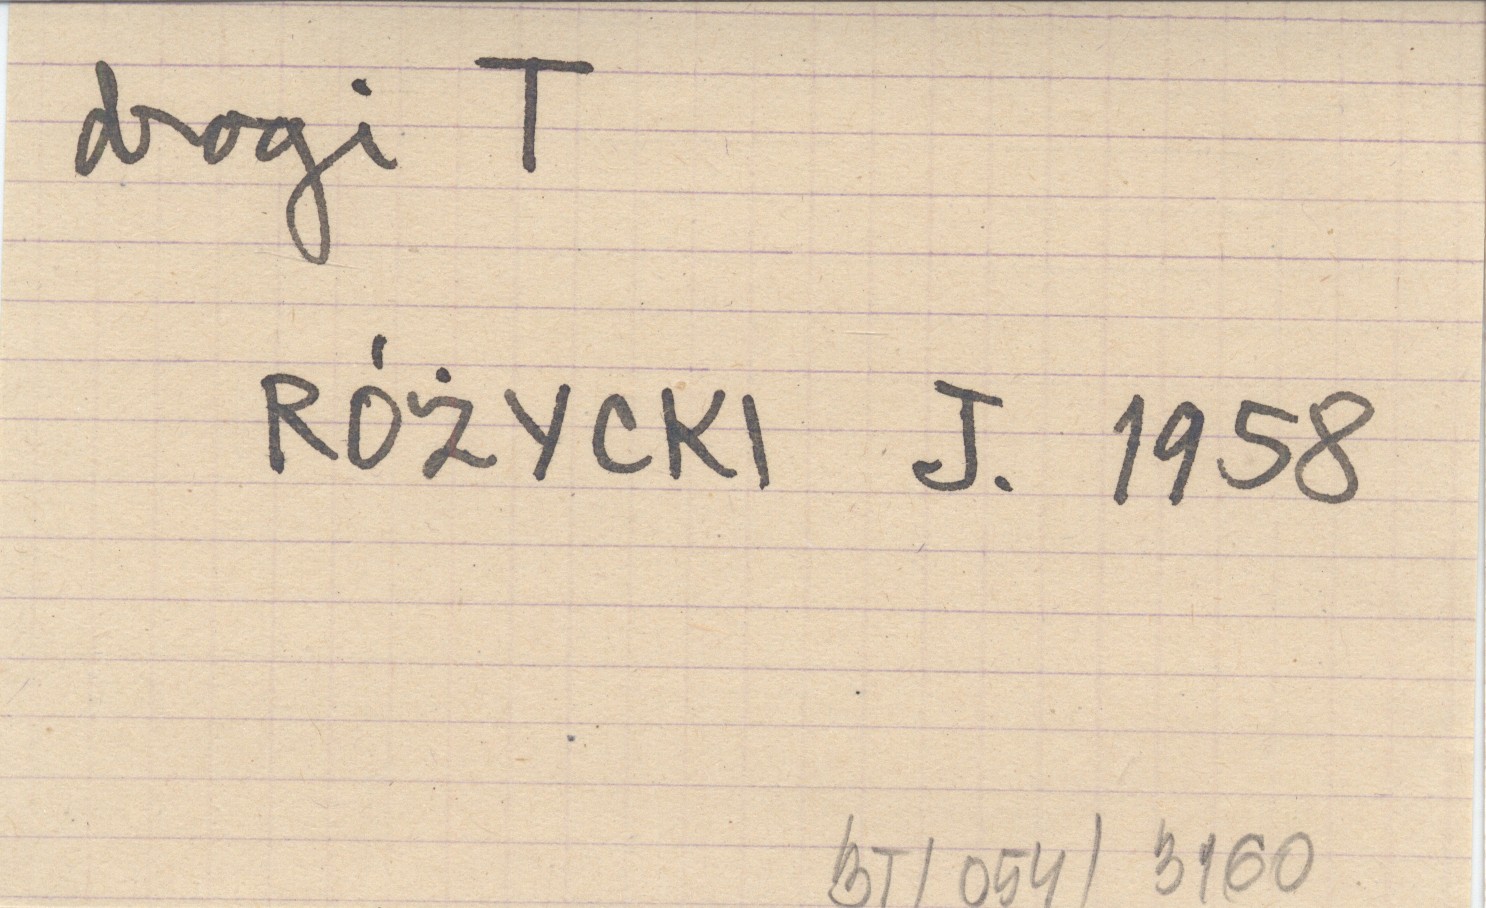 drogi T
RÓŻYCKI J. 1958
BT/054/3160